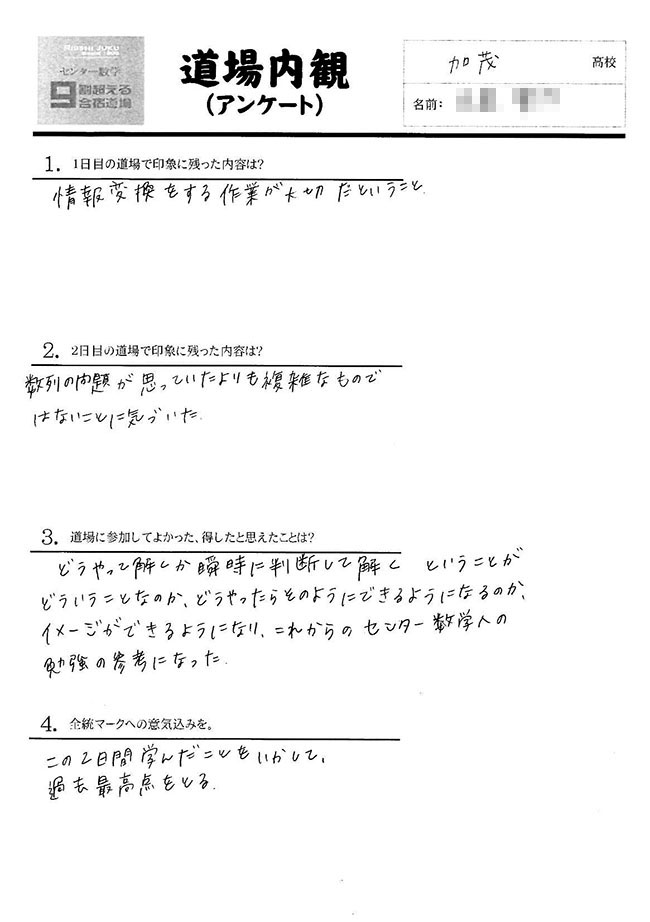 RISSHI JUKU
センター数学
9割超える
合宿道場
道場内観
(アンケート)
加茂 高校
名前:
1. 1日目の道場で印象に残った内容は?
情報変換をする作業が大切だということ.
2. 2日目の道場で印象に残った内容は?
数列の問題が思っていたよりも複雑なもので
はないことに気づいた.
3. 道場に参加してよかった、得したと思えたことは?
どうやって解くか瞬時に判断して解く ということが
どういうことなのか、どうやったらそのようにできるようになるのか、
イメージができるようになり、これからの センター数学人の
勉強の参考になった.
4. 全統マークへの意気込みを。
この2日間学んだことをいかして、
過去最高点をとる.